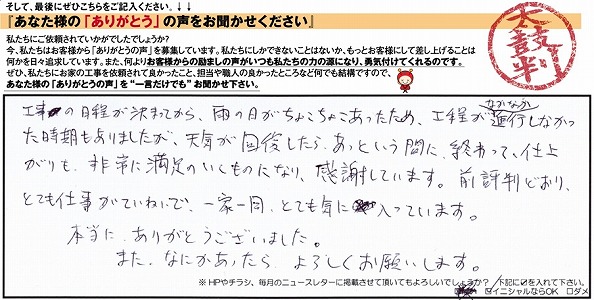 そして、最後にぜひこちらをご記入ください。↓↓
『あなた様の「ありがとう」の声をお聞かせください』
私たちにご依頼されていかがでしたでしょうか?
今、私たちはお客様から「ありがとうの声」を募集しています。私たちにしかできないことはないか、もっとお客様にして差し上げることは
何かを日々追求しています。また、何よりお客様からの励ましの声がいつも私たちの力の源になり、勇気付けてくれるのです。
ぜひ、私たちにお家の工事を依頼されて良かったこと、担当や職人の良かったところなど何でも結構ですので、
あなた様の「ありがとうの声」を“一言だけでも”お聞かせ下さい。
太鼓判
工事の日程が決まってから、雨の日がちょこちょこあったため、工程がなかなか進行しなかっ
た時期もありましたが、天気が回復したら、あっという間に、終わって、仕上
がりも、非常に満足のいくものになり、感謝しています。前評判どおり、
とても仕事がていねいで、一家一同、とても気に入っています。
本当に、ありがとうございました。
また、なにかあったら、よろしくお願いします。
※HPやチラシ、毎月のニュースレターに掲載させて頂いてもよろしいでしょうか? 下記に☑を入れて下さい。
☑イニシャルならOK □ダメ